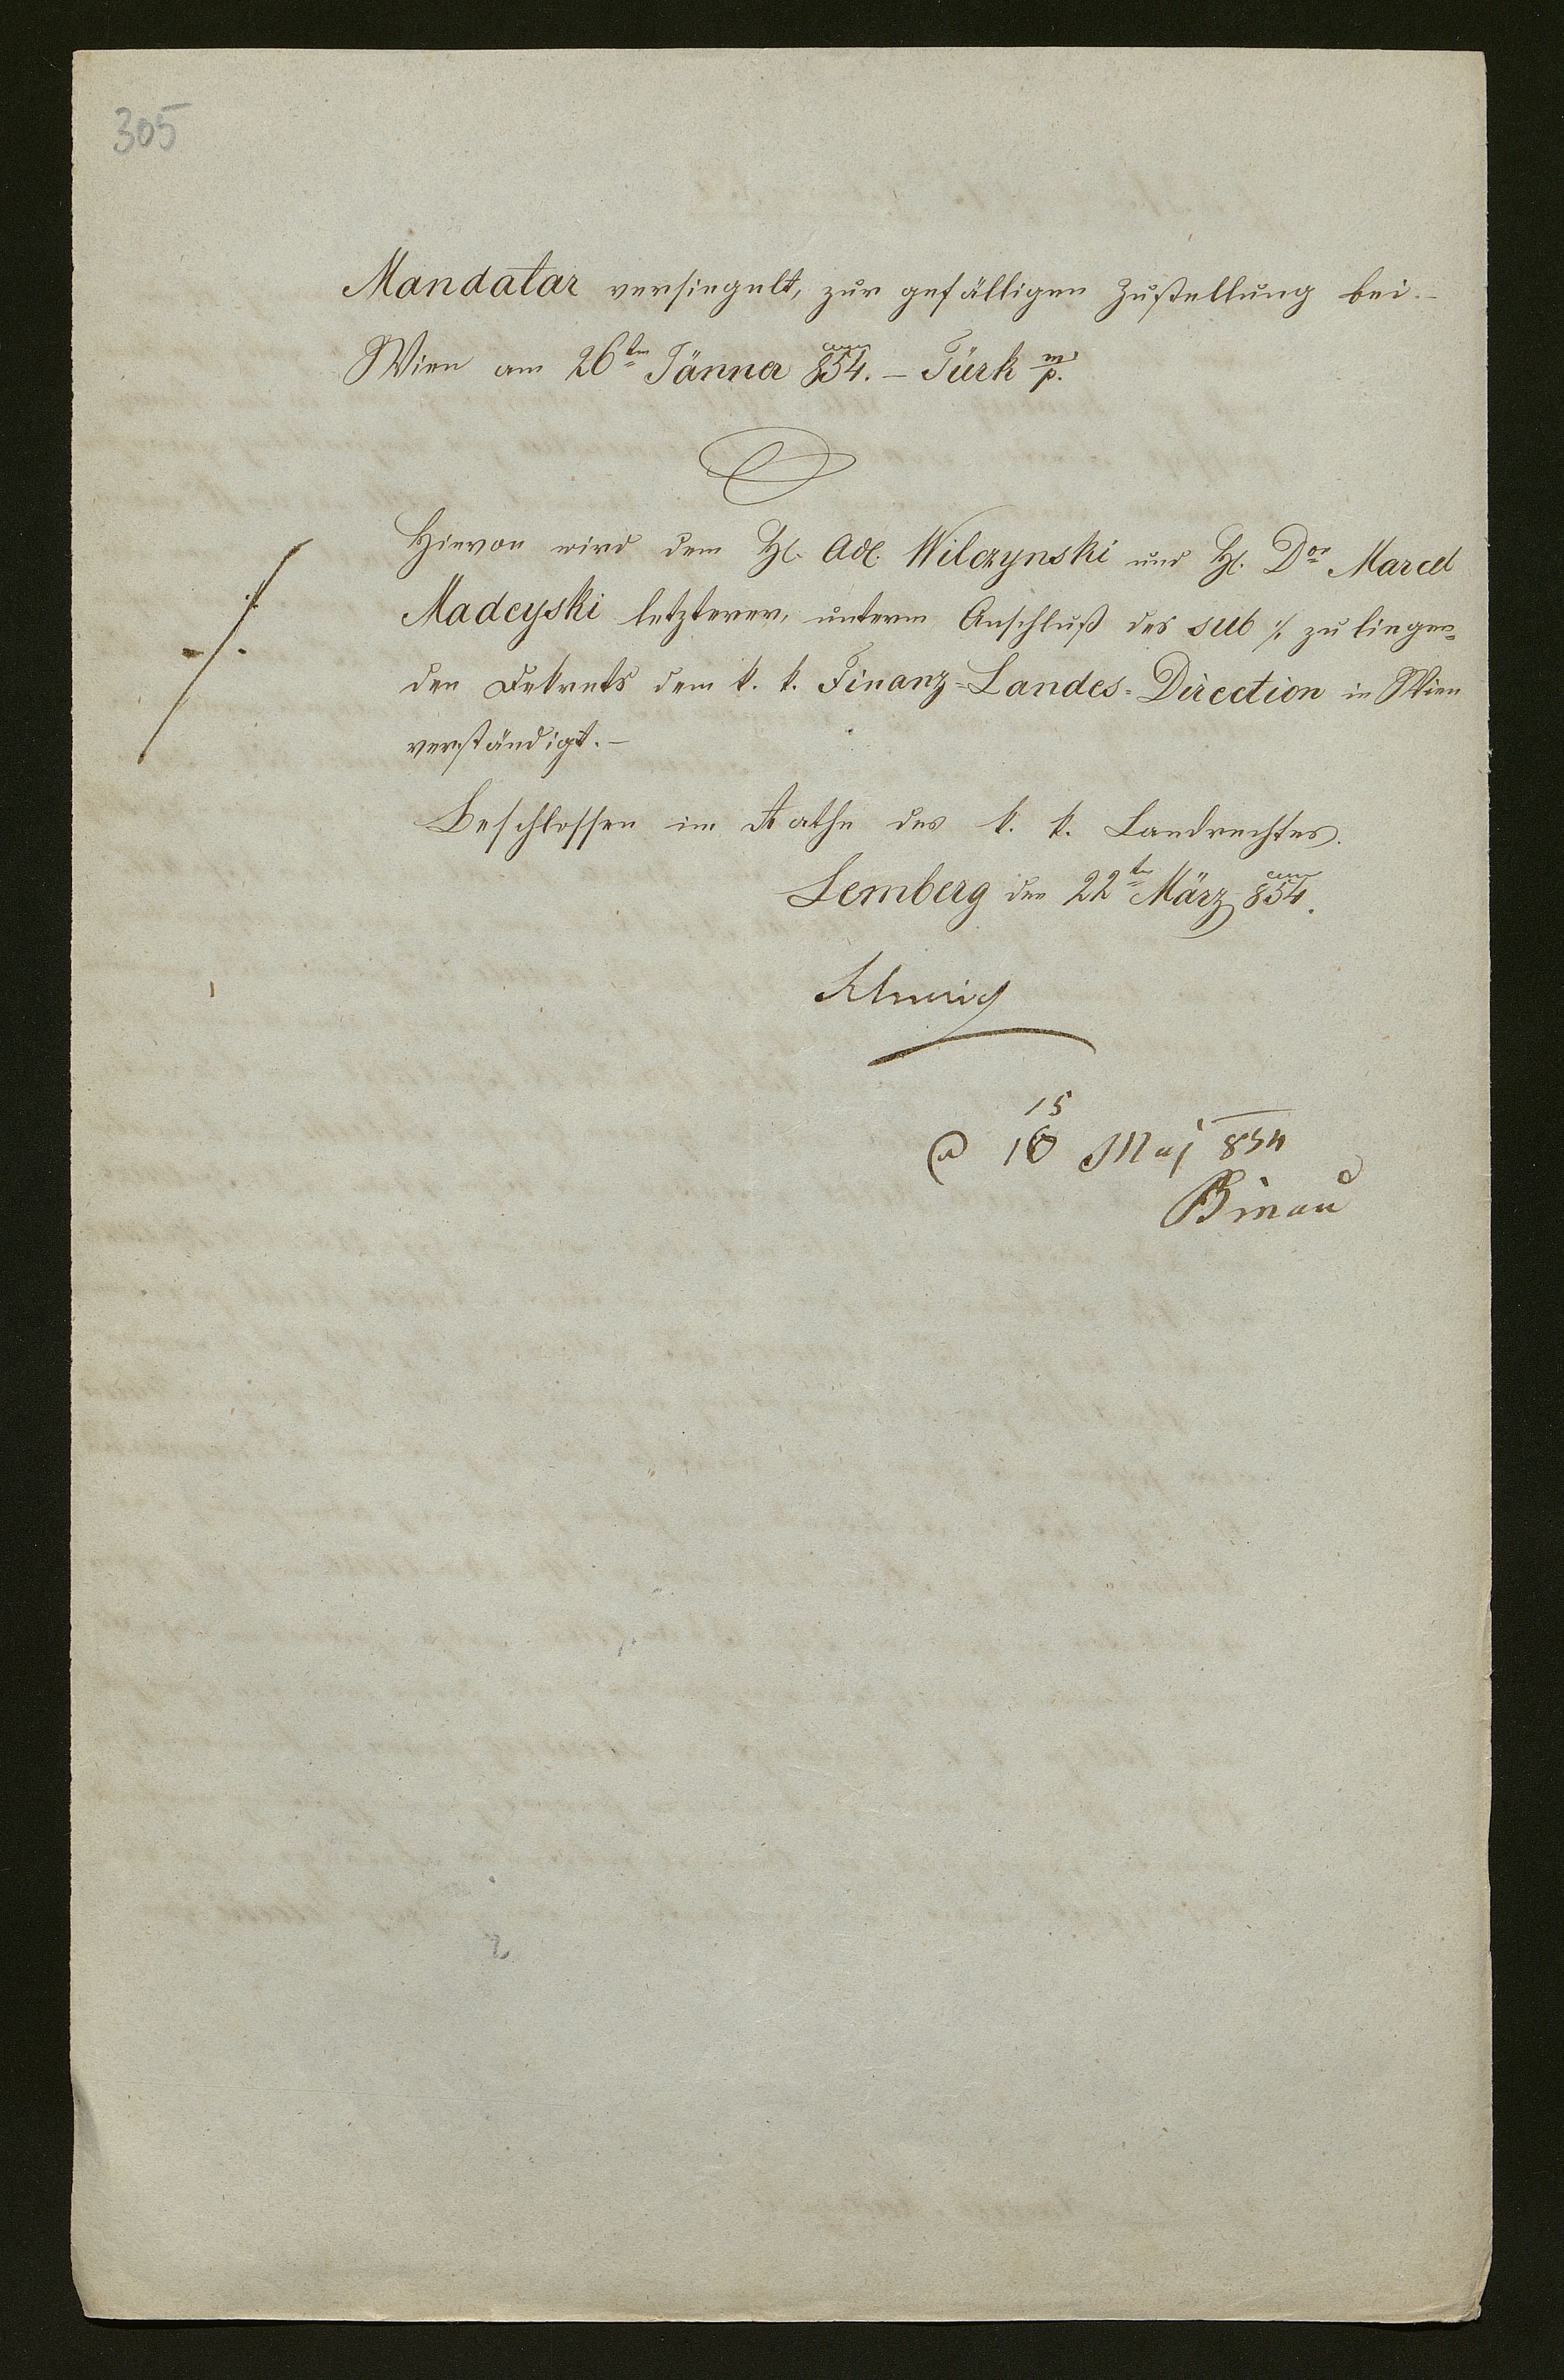 305
Mandatar versiegelt, zur gefälligen Zustellung bei.–
Wien am 26ten Jänner 854. – Türk m/p.
Hievon wird dem H. Adl. Wilczynski und H. Dor Marcel
Madeyski letzterer, unterm Anschluß des sub ·/. zu liegen-
den Dekrets dem k. k. Finanz-Landes-Direction in Wien
verständigt. –
·/.
Beschlossen im Rathe des k. k. Landrechtes.
Lemberg den 22ten März 854.
15
16 Maj 854